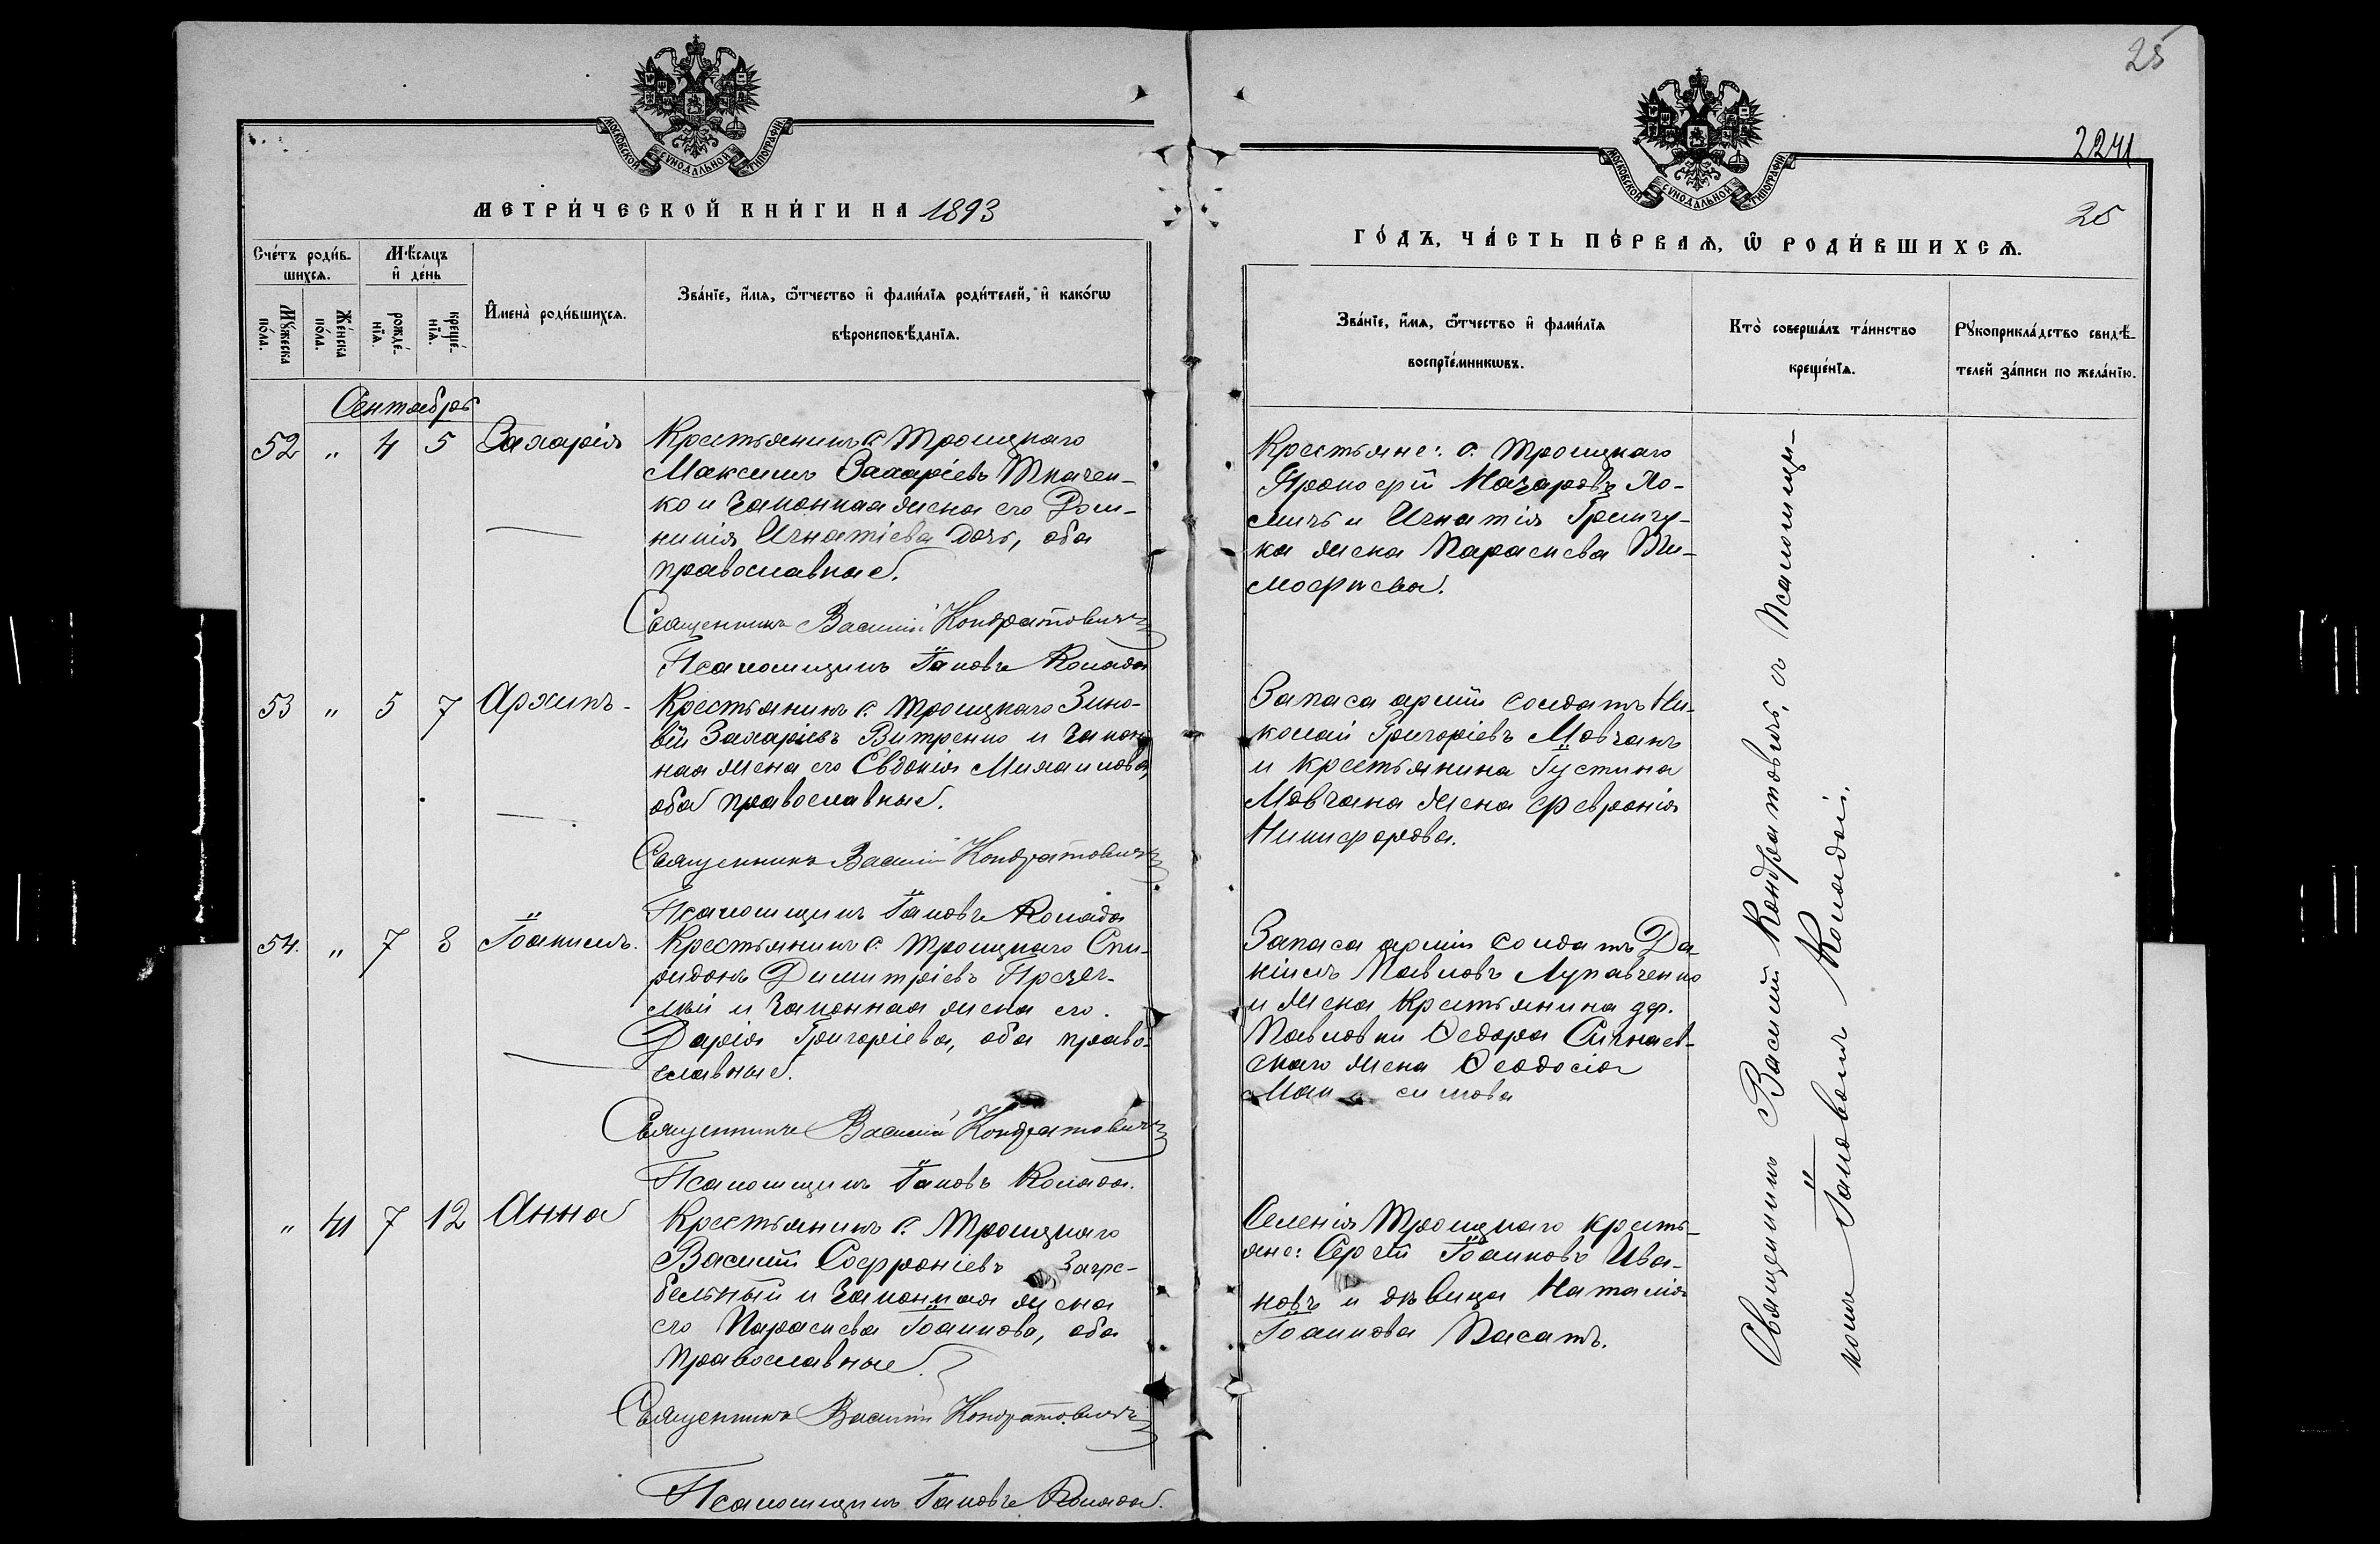 25
2241
25
МОСКОВСКОЙ СѴНОДАЛЬНОЙ ТИПОГРАФІИ
МЕТРИЧЕСКОЙ КНИГИ НА 1893
Счетъ родив-
шихся.
Мѣсяцъ
и день
Мꙋжеска
пола.
Женска
пола.
рожде-
нїя.
креще-
нїя.
Имена родившихся.
Званїе, имя, ѿтчество и фамилїя родителей, и какогѡ
вѣроисповѣданїя.
Сентябрь
52 " 4 5 Захарія
Крестьянинъ с. Троицкаго
Максимъ Захаріевъ Ткачен-
ко и законная жена его Дом-
никія Игнатіева дочь, оба
православные.
Священникъ Василій Кондратовичъ
Псаломщикъ Іаковъ Коляда
53 " 5 7 Архипъ
Крестьянинъ с. Троицкаго Зино-
вій Захаріевъ Витренко и закон-
ная жена его Евдокія Михаилова,
оба православные.
Священникъ Василій Кондратовичъ
Псаломщикъ Іаковъ Коляда
54. " 7 8 Іоакимъ.
Крестьянинъ с. Троицкаго Спи-
ридонъ Димитріевъ
и законная жена его
Дарія Григоріева, оба право-
славные.
Священникъ Василій Кондратовичъ
Псаломщикъ Іаковъ Коляда.
" 41 7 12 Анна
Крестьянинъ с. Троицкаго
Василій Софроніевъ Загре-
бельный и законная жена
его Параскева Іоаннова, оба
православные.
Священникъ Василій Кондратовичъ
Псаломщикъ Іаковъ Коляда.
МОСКОВСКОЙ СѴНОДАЛЬНОЙ ТИПОГРАФІИ
ГОДЪ, ЧАСТЬ ПЕРВАЯ, Ѡ РОДИВШИХСЯ.
Званїе, имя, ѿтчество и фамилїя
воспрїемникѡвъ.
Кто совершалъ таинство
крещенїя.
Рꙋкоприкладство свидѣ-
телей записи по желанїю.
Крестьяне: с. Троицкаго
Прокофій Назаровъ Хо-
мичъ и Игнатія
жена Параскева Ти-
мофѣева.
Запаса арміи солдатъ Ни-
колай Григоріевъ Мовчанъ
и крестьянина Іустина
Мовчана жена Февронія
Никифорова.
Запаса арміи солдатъ Да-
ніилъ Павловъ Лукавченко
и жена крестьянина дер.
Павловки Ѳедора
жена Ѳеодосія
Мак симова
Селенія Троицкаго кресть-
яне: Сергій Іоанновъ Ива-
новъ и дѣвица Наталія
Іоаннова Пасатъ.
Священникъ Василій Кондратовичъ, съ Псаломщи-
комъ Іаковомъ Колядой.